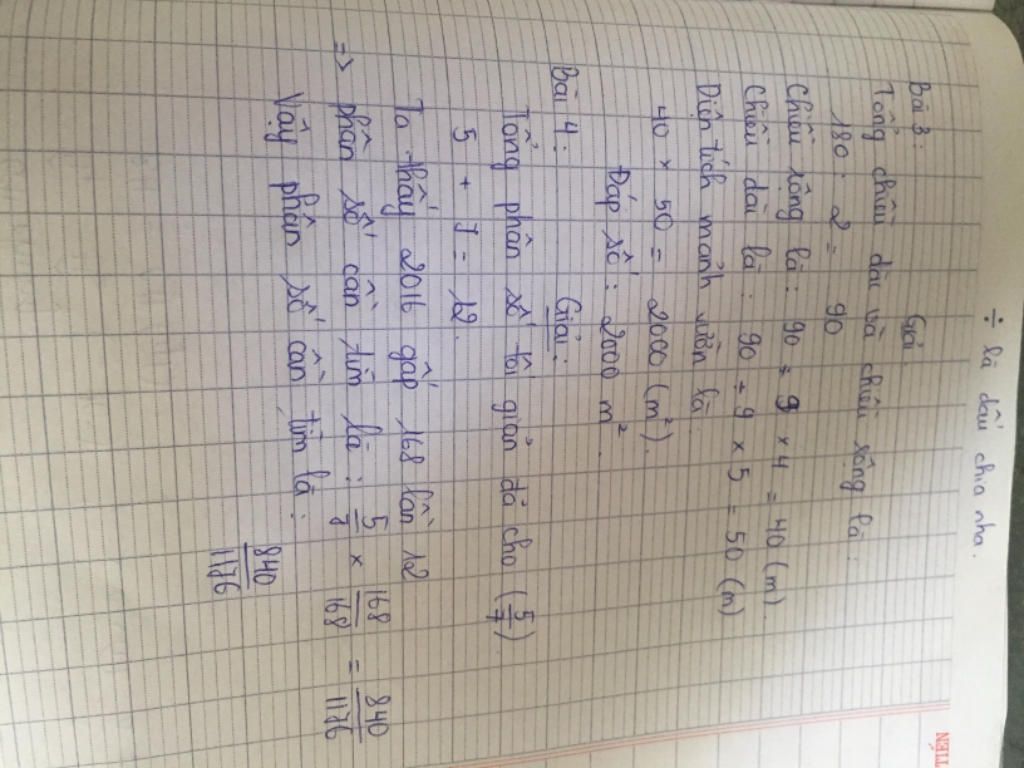 ÷ là dấu chia nha.
Bài 3: Giải
Tổng chiều dài và chiều rộng là:
180 : 2 = 90
Chiều rộng là: 90 ÷ 9 × 4 = 40 (m)
Chiều dài là: 90 ÷ 9 × 5 = 50 (m)
Diện tích mảnh vườn là
40 × 50 = 2000 (m²).
Đáp số: 2000 m².
Bài 4: Giải:
Tổng phân số tối giản đã cho (5/7)
5 + 7 = 12.
Ta thấy 2016 gấp 168 lần 12
=> phân số cần tìm là: 5/7 × 168/168 = 840/1176
Vậy phân số cần tìm là: 840/1176
TIẾN